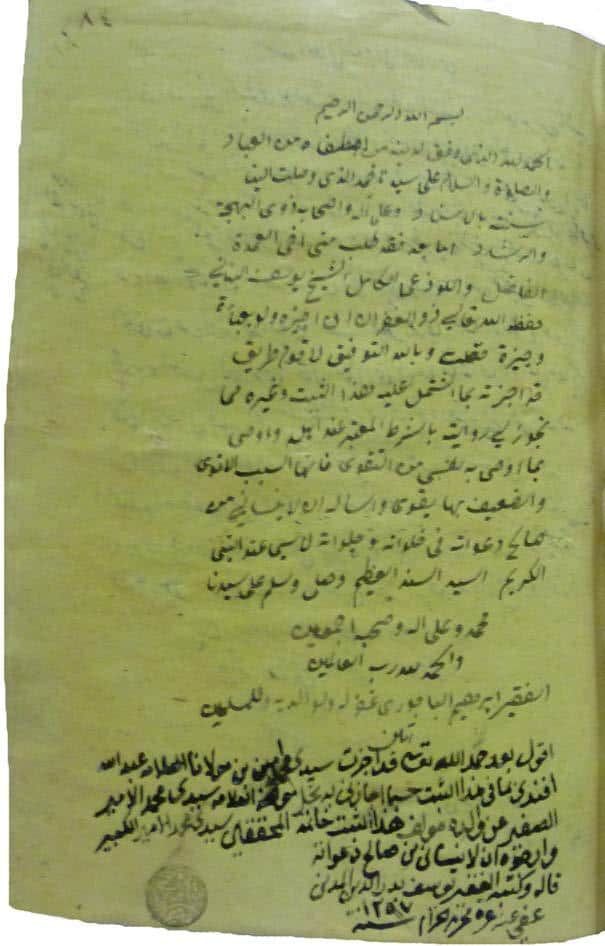 ١٨٤
بسم الله الرحمن الرحيم
الحمد لله الذي وفق لدينه من اصطفاه من العباد
والصلاة والسلام على سيدنا محمد الذي وصلت الينا
سنته بالاسناد وعلى آله واصحابه ذوى البهجة
والرشاد اما بعد فقد طلب منى اخى العمدة
الفاضل واللوذعى الكامل الشيخ يوسف
حفظه الله تعالى ان اجيزه ولو بعبارة
وجيزة فقلت وبالله التوفيق لاقوم طريق
قد اجزته بما اشتمل عليه هذا الثبت وغيره مما
تجوز لي روايته بالشرط المعتبر عند اهله واوصى
بما اوصى به نفسى من التقوى فانها السبب الاقوى
والضعيف بها يقوى واساله ان لا ينساني من
صالح دعواته في خلواته وجلواته لا سيما عند النبى
الكريم السيد السند العظيم وصل وسلم على سيدنا
محمد وعلى اله وصحبه اجمعين
والحمد لله رب العالمين
الفقير ابرهيم الباجورى غفر له ولوالديه وللمسلمين
اقول بعد حمد الله تعالى قد اجزت سيدى امين بن مولانا العلامه عبد الله
افندى بما في هذا الثبت حسبما اجازني به العلامه سيدى محمد الامير
الصغير عن والده مولف هذا الثبت خاتمة المحققين سيدى محمد الامير الكبير
وارجوه ان لا ينساني من صالح دعواته
قاله وكتبه الفقير يوسف بدر الدين المدنى
عفى عنه غرة محرم الحرام سنة ١٢٥٧